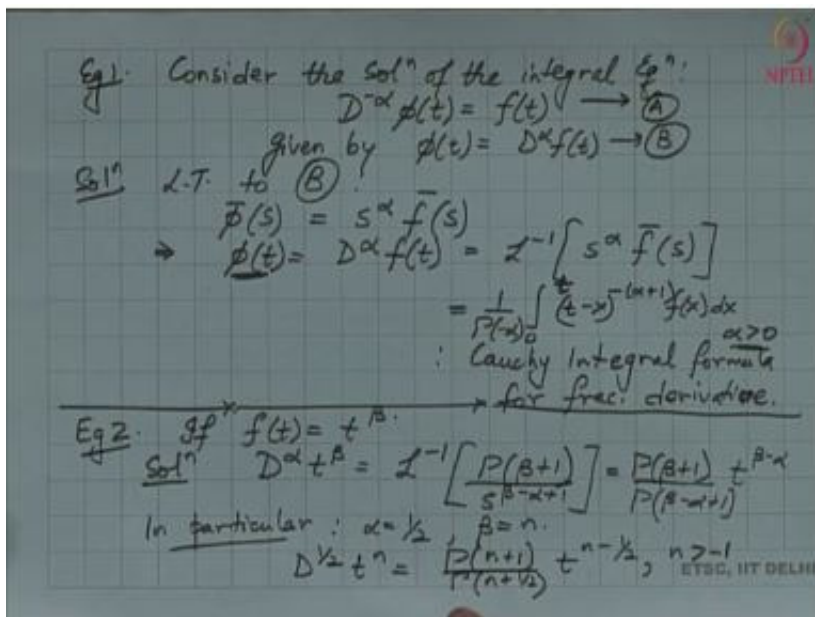 Eg 1. Consider the Solⁿ of the integral Eqⁿ:
NPTEL
D^{-α} φ(t) = f(t) → Ⓐ
given by φ(t) = D^α f(t) → Ⓑ
Solⁿ L.T. to Ⓑ :
φ̄(s) = s^α f̄(s)
⇒ φ(t) = D^α f(t) = ℒ^{-1}[s^α f̄(s)]
= 1/Γ(-α) ∫_0^t (t-x)^{-(α+1)} f(x) dx
α>0
: Cauchy Integral formula
for frac. derivative.
Eg 2. If f(t) = t^β.
Solⁿ D^α t^β = ℒ^{-1}[Γ(β+1)/s^{β-α+1}] = Γ(β+1)/Γ(β-α+1) t^{β-α}
In particular : α = 1/2, β = n.
D^{1/2} t^n = Γ(n+1)/Γ(n+1/2) t^{n-1/2}, n > -1
ETSC, IIT DELHI